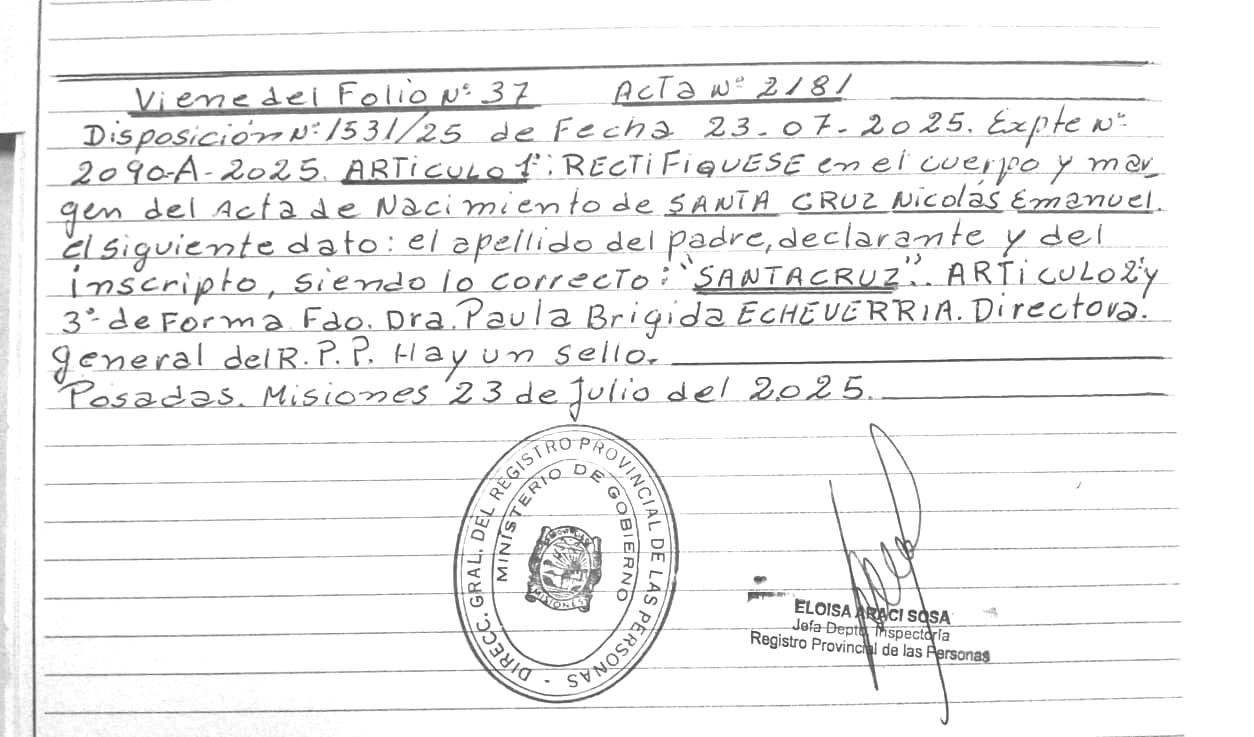 Viene del Folio Nº 37 Acta Nº 2181
Disposición Nº 1531/25 de Fecha 23-07-2025. Expte Nº
2090-A-2025. ARTICULO 1º: RECTIFIQUESE en el cuerpo y mar_
gen del Acta de Nacimiento de SANTA CRUZ Nicolás Emanuel.
el siguiente dato: el apellido del padre, declarante y del
inscripto, siendo lo correcto: "SANTACRUZ".. ARTICULO 2º y
3º de Forma Fdo. Dra. Paula Brigida ECHEVERRIA. Directora.
general del R.P.P. Hay un sello.
Posadas. Misiones 23 de Julio del 2025.
DIRECC. GRAL. DEL REGISTRO PROVINCIAL DE LAS PERSONAS -
MINISTERIO DE GOBIERNO
MISIONES
ELOISA ARACI SOSA
Jefa Depto. Inspectoría
Registro Provincial de las Personas